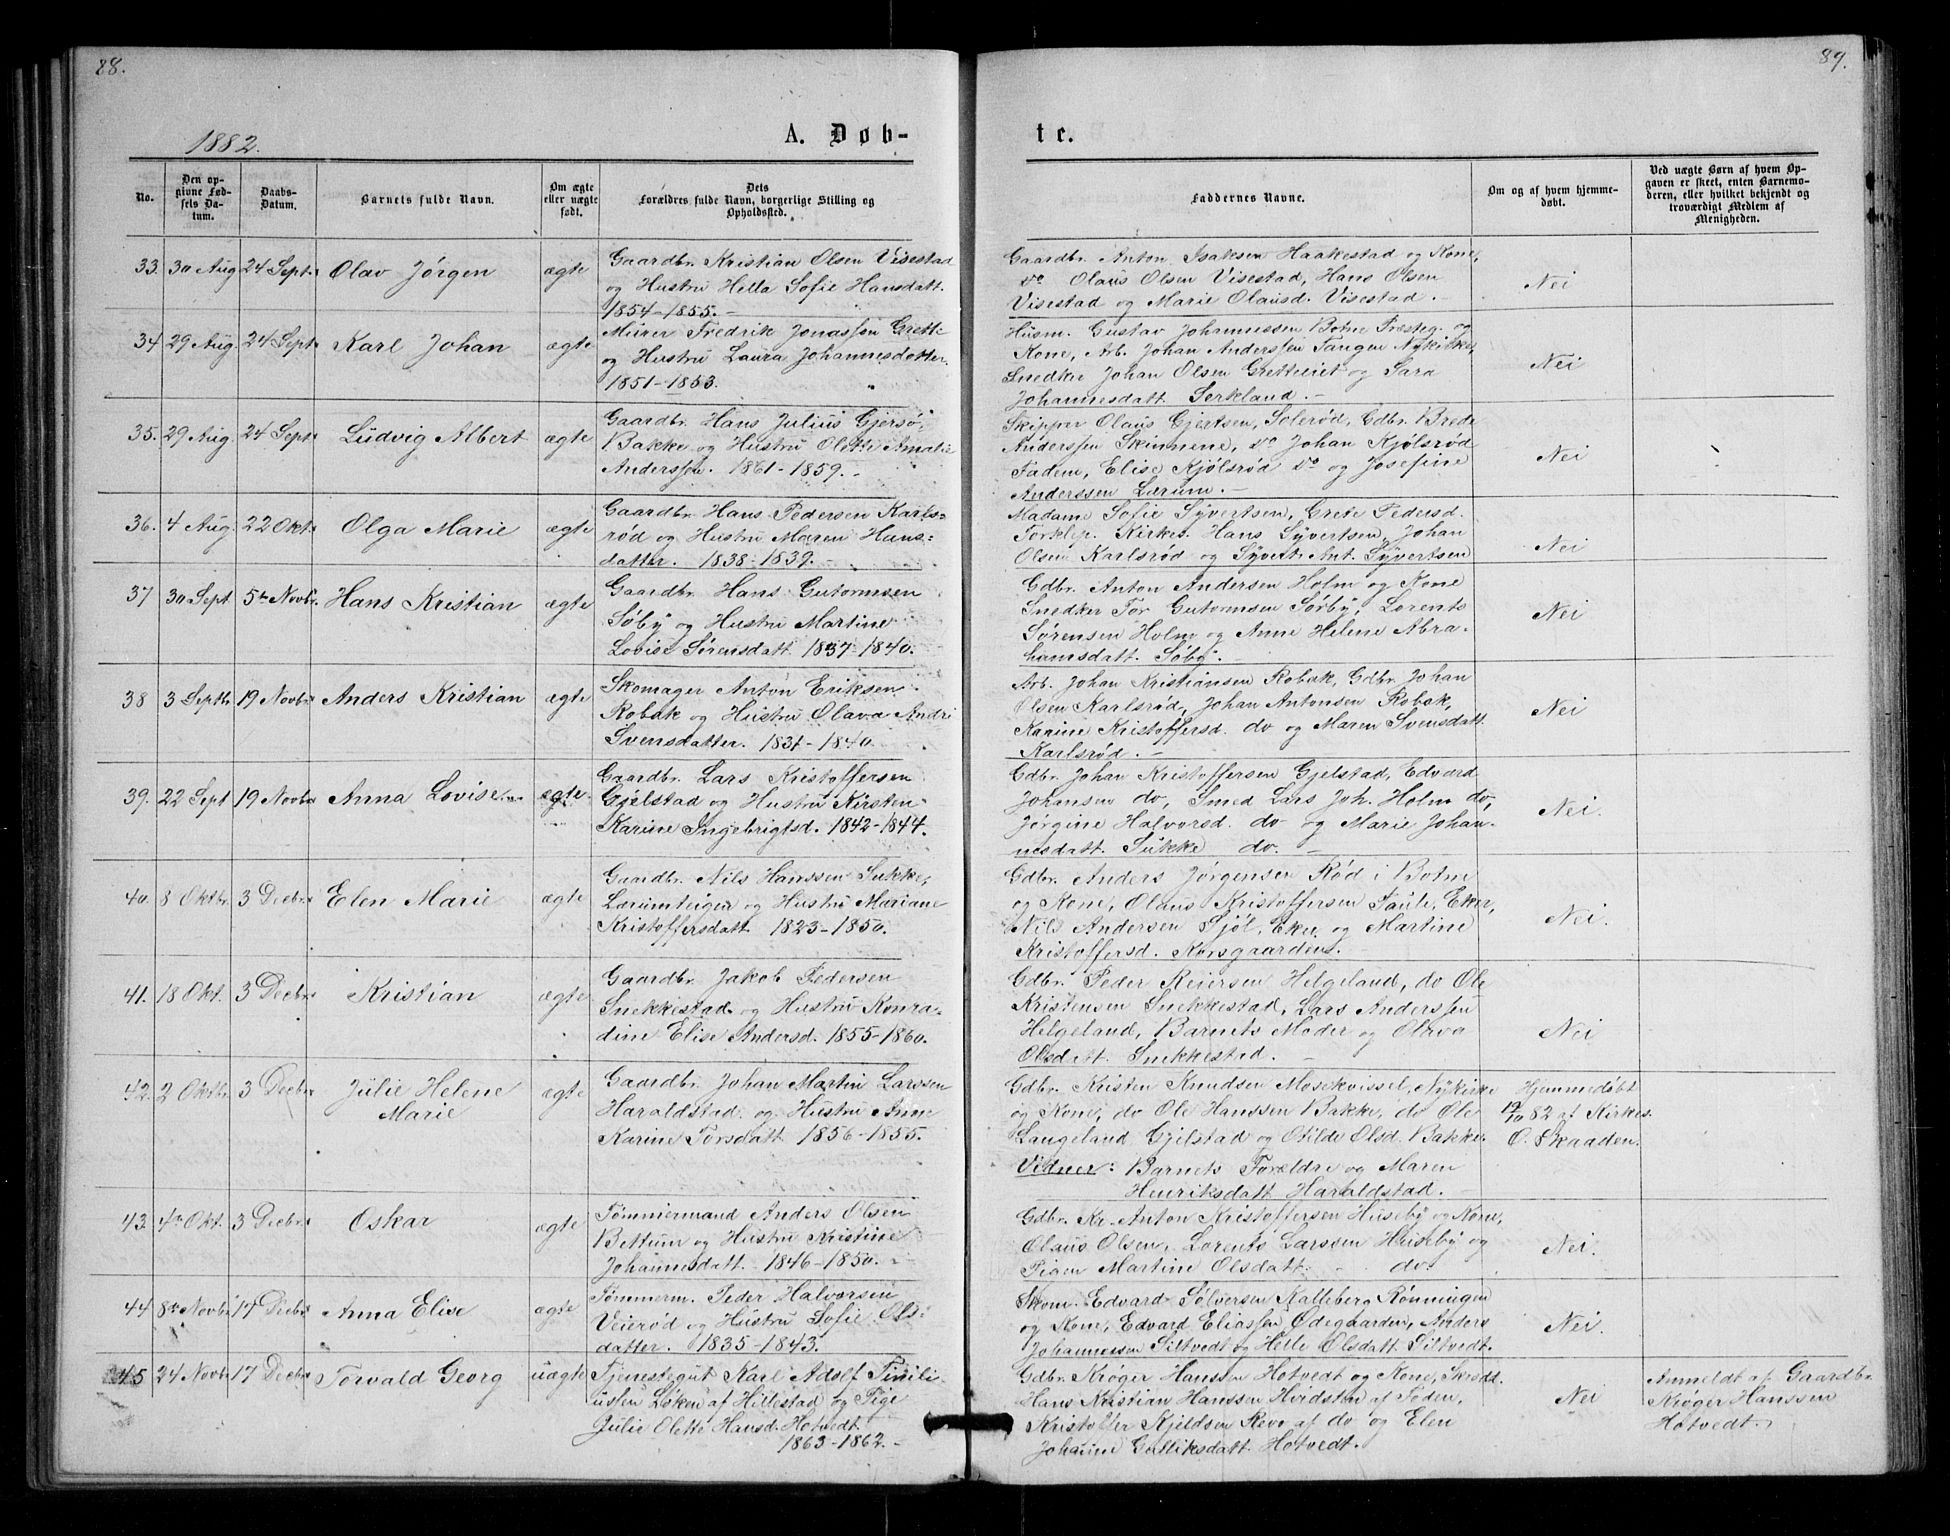 88.
89.
1882.
A. Døb-
te.
No.
Den op-
givne Fød-
sels Da-
tum.
Daabs-
Datum.
Barnets fulde Navn.
Om ægte
eller uægte
født.
Dets
Forældres fulde Navn, borgerlige Stilling og
Opholdssted.
Faddernes Navne.
Om og af hvem hjemme-
døbt.
Ved uægte Børn af hvem Op-
gaven er skeet, enten Barnemo-
deren, eller hvilket bekjendt og
troværdigt Medlem af
Menigheden.
33. 30 Aug 24 Sept. Olav Jørgen ægte
Gaardbr. Kristian Olsen Visestad
og Hustru Hella Sofie Hansdatt.
1854-1855.-
Gaardbr. Anton Isaksen Haakestad og Kone,
do Olaus Olsen Visestad, Hans Olsen
Visestad og Marie Olausd. Visestad.-
Nei
34 29 Aug 24 Sept. Karl Johan ægte
Murer Fredrik Jonassen Grett-
og Hustru Laura Johannesdatter
1851-1853.
Husm. Gustav Johannessen Botne Præsteg. og
Kone, Arb. Johan Anderssen Tangen Nykirke,
Snedker Johan Olsen Gretteeiet og Sara
Johannesdatt. Serkland.-
Nei
35. 29 Aug. 24 Sept. Ludvig Albert ægte
Gaardbr. Hans Julius Gjersø,
Bakke og Hustru Olette Amalie
Anderssen. 1861-1859.-
Skipper Olaus Gjertsen, Solerød, Gdbr. Brede
Anderssen Skinmene, do Johan Kjølsrød
Faden, Elise Kjølsrød do og Josefine
Anderssen Lærum.-
Nei
36. 4 Aug. 22 Okt. Olga Marie ægte
Gaardbr. Hans Pedersen Karls-
rød og Hustru Maren Hans-
datter. 1838-1839.-
Madame Sofie Syvertsen, Grete Pedersd.
Torklep. Kirkes. Hans Syvertsen, Johan
Olsen Karlsrød og Syvert Ant. Syvertsen
Nei
37 30 Sept 5te Novbr. Hans Kristian ægte
Gaardbr. Hans Gutormsen
Søby og Hustru Martine
Lovise Sørensdatt. 1837-1840.
Gdbr. Anton Andersen Holm og Kone
Snedker Tor Gutormsen Sørby, Lorents
Sørensen Holm og Anne Helene Abra-
hamsdatt. Søby.-
Nei
38 3 Septbr. 19 Novbr. Anders Kristian ægte
Skomager Anton Eriksen
Robak og Hustru Olava Andri
Svensdatter. 1831-1840.
Arb. Johan Kristiansen Robak, Gdbr. Johan
Olsen Karlsrød, Johan Antonsen Robak,
Karine Kristoffersd. do og Maren Svensdatt.
Karlsrød.-
Nei
39. 22 Sept 19 Novbr Anna Lovise ægte
Gaardbr. Lars Kristoffersen
Gjelstad og Hustru Kirsten
Karine Ingebrigtsd. 1842-1844.
Gdbr. Johan Kristoffersen Gjelstad, Edvard
Johansen do, Smed Lars Joh. Holm do,
Jørgine Halvorsd. do og Marie Johan-
nesdatt. Sukke do.-
Nei.
40. 8 Oktbr. 3 Decbr. Elen Marie ægte
Gaardbr. Nils Hanssen Sukke,
Lærumteigen og Hustru Mariane
Kristoffersdatt. 1823-1850.
Gdbr. Anders Jørgensen Rød i Botne
og Kone, Olaus Kristoffersen Taule, Eker,
Nils Andersen Sjøl, Eker og Martine
Kristoffersd. Korsgaarden.-
Nei.
41. 18 Okt. 3 Decbr. Kristian ægte
Gaardbr. Jakob Pedersen
Snekkestad og Hustru Konra-
dine Elise Andersd. 1855-1860.
Gdbr. Peder Reiersen Helgeland, do Ole
Kristensen Snekkestad, Lars Anderssen
Helgeland, Barnets Moder og Olava
Olsdatt. Snekkestad.-
Nei
42. 2 Oktbr. 3 Decbr. Julie Helene
Marie ægte
Gaardbr. Johan Martin Larssen
Haraldstad og Hustru Anne
Karine Torsdatt 1856-1855.
Gdbr. Kristen Knudsen Mosekvissel, Nykirke
og Kone, do Ole Hanssen Bakke, do Ole
Langeland Gjelstad og Otilde Olsd. Bakke.
Vidner: Barnets Forældre og Maren
Henriksdatt Haraldstad.-
Hjemmedøbt
19/10 82 af Kirkes.
O. Skaaden.
43. 4de Okt. 3 Decbr. Oskar ægte
Tømmermand Anders Olsen
Bettum og Hustru Kristine
Johannesdatt. 1846-1850.-
Gdbr. Kr. Anton Kristoffersen Huseby og Kone,
Olaus Olsen, Lorents Larssen Huseby og
Pigen Martine Olsdatt. do.
Nei.
44 8de Novbr. 17 Decbr. Anna Elise ægte
Tømmerm. Peder Halvorsen
Veierød og Hustru Sofie Ols-
datter. 1835-1843.
Skom. Edvard Sølversen Kalleberg Rønningen
og Kone, Edvard Eliassen Ødegaarden, Anders
Johannessen Siltvedt og Helle Olsdatt. Siltvedt.
Nei.
45 24 Novbr 17 Decbr Torvald Georg uægte
Tjenestegut Karl Adolf Timili-
usen Løken af Hillestad og Pige
Julie Olette Hansd. Hotvedt.
1863-1862.-
Gdbr. Krøger Hanssen Hotvedt og Kone, Skrædd.
Hans Kristian Hanssen Hvidsten af Føden,
Kristoffer Kjeldsen Revo af do og Elen
Johanne Gulliksdatt. Hotvedt.
Nei
Anmeldt af Gaardbr.
Krøger Hanssen
Hotvedt.